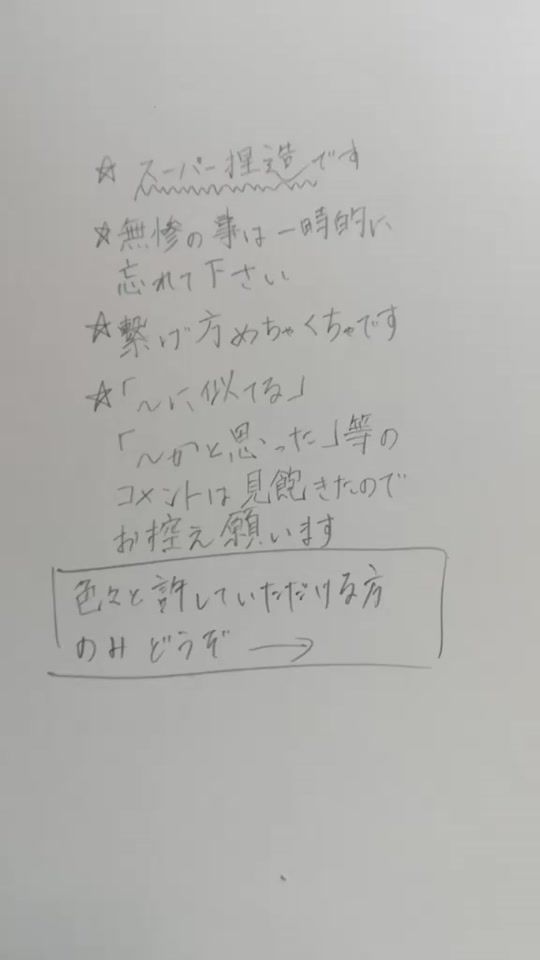 ☆ スーパー捏造です
☆無惨の事は一時的に
忘れて下さい
☆繋げ方めちゃくちゃです
☆「〜に似てる」
「〜かと思った」等の
コメントは見飽きたので
お控え願います
色々と許していただける方
のみどうぞ→